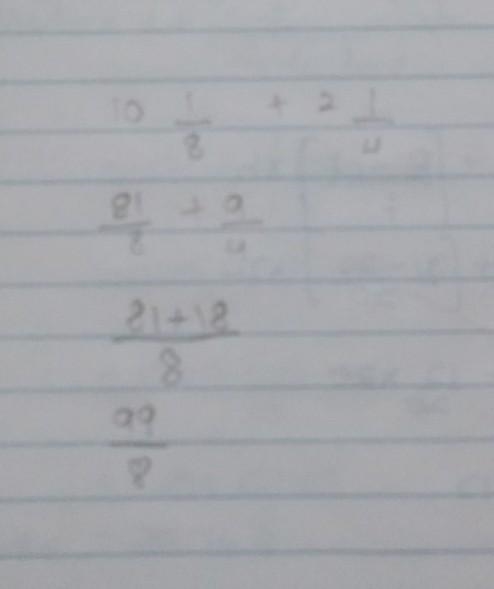 10 1/8 + 2 1/4
81/8 + 9/4
81+18/8
99/8